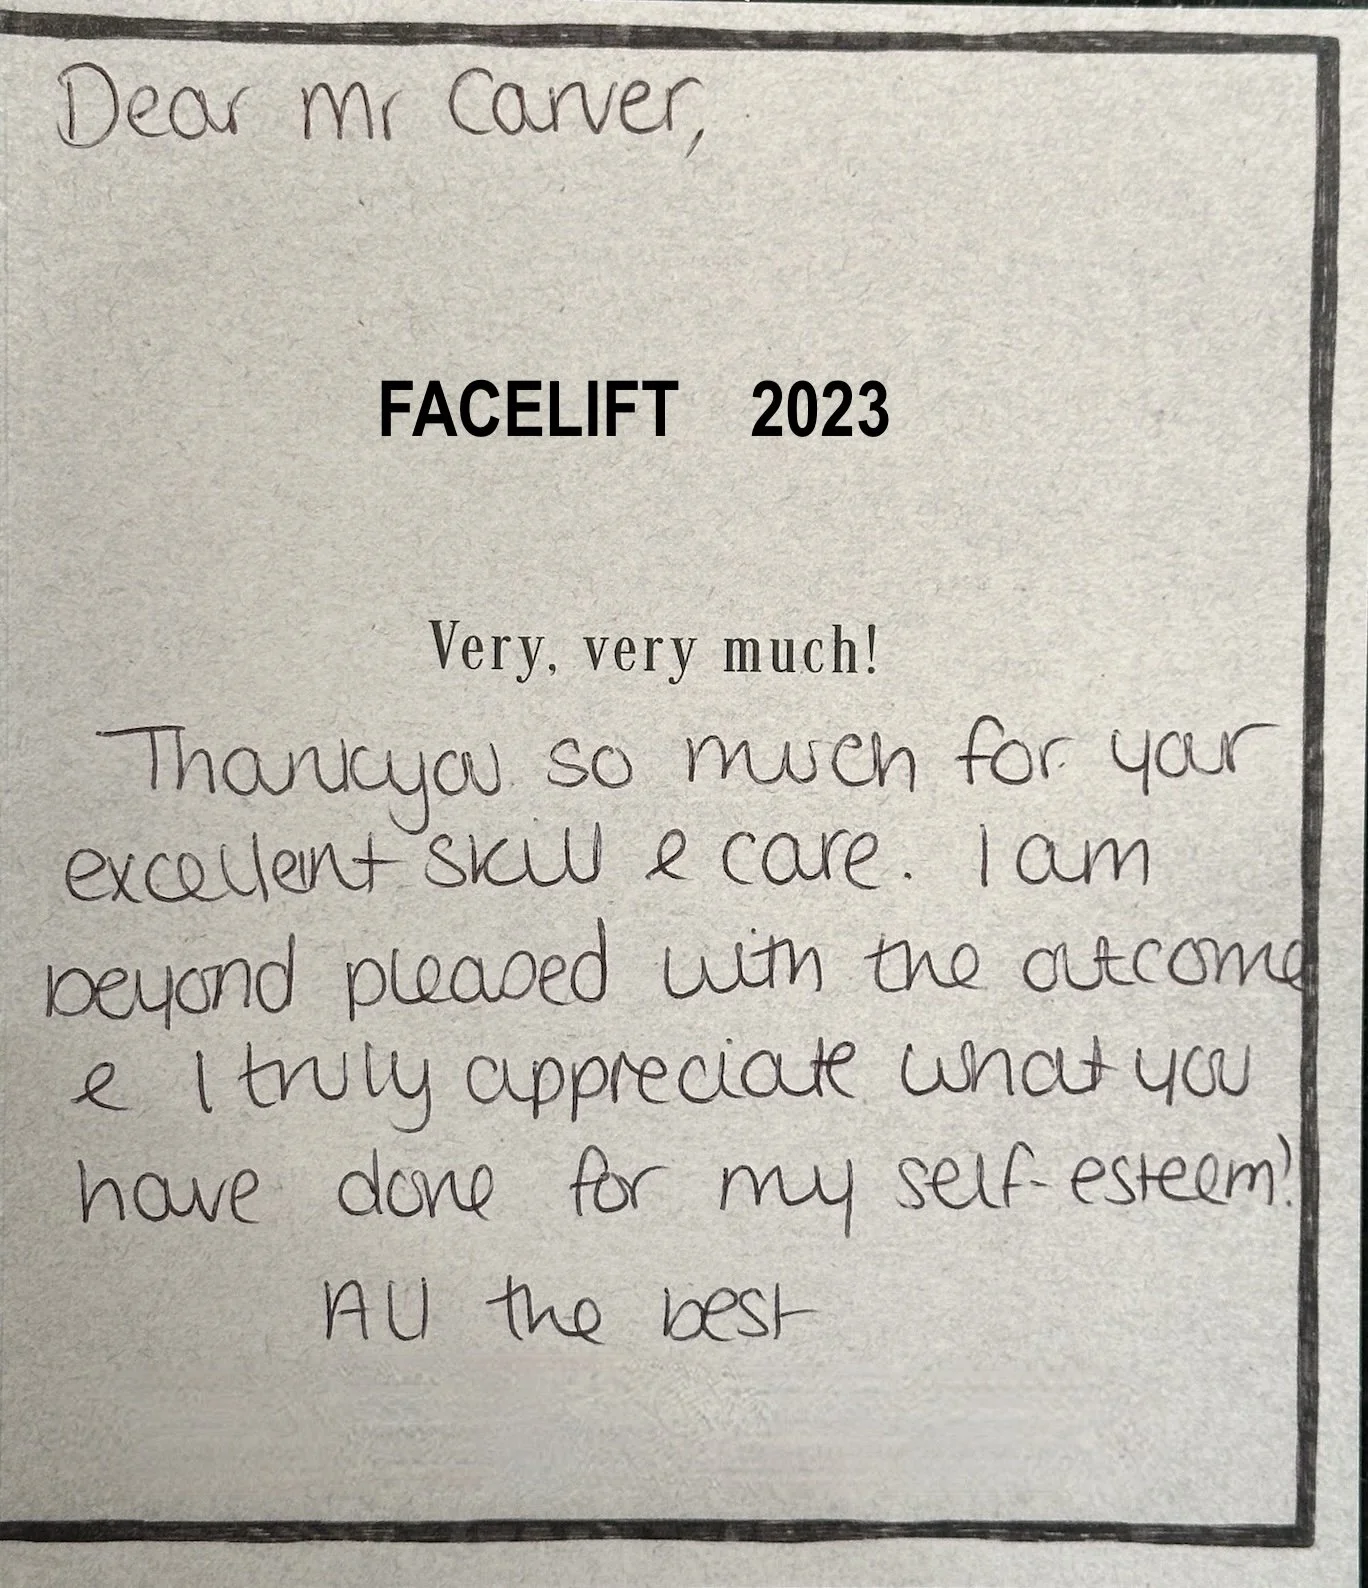 Dear Mr Carver,
FACELIFT 2023
Very, very much!
Thankyou so much for your
excellent skill & care. I am
beyond pleased with the outcome
& I truly appreciate what you
have done for my self-esteem!
All the best